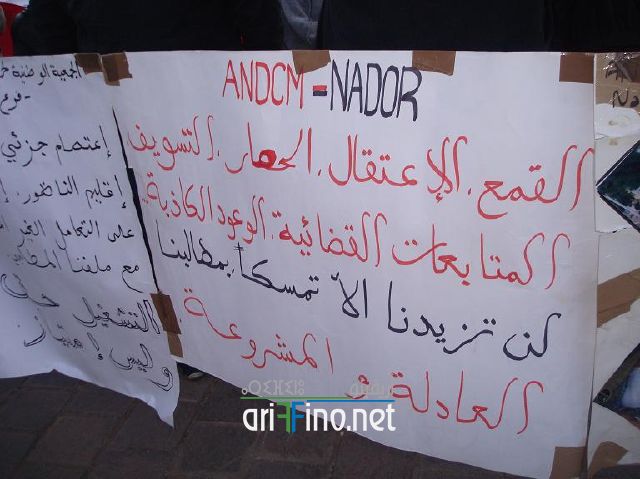 ANDCM = NADOR
القمع، الإعتقال، الحصار، التسويف
المتابعات القضائية، الوعود الكاذبة.
لن تزيدنا الأ تمسكا بمطالبنا
العادلة و المشروعة.
الجمعية الوطنية
- فرع
إعتصام جزئي
إقليم الناظور، إ
على التعامل الغير
مع ملفنا المطلبي
التشغيل حق
وليس إمتياز
ariffino.net